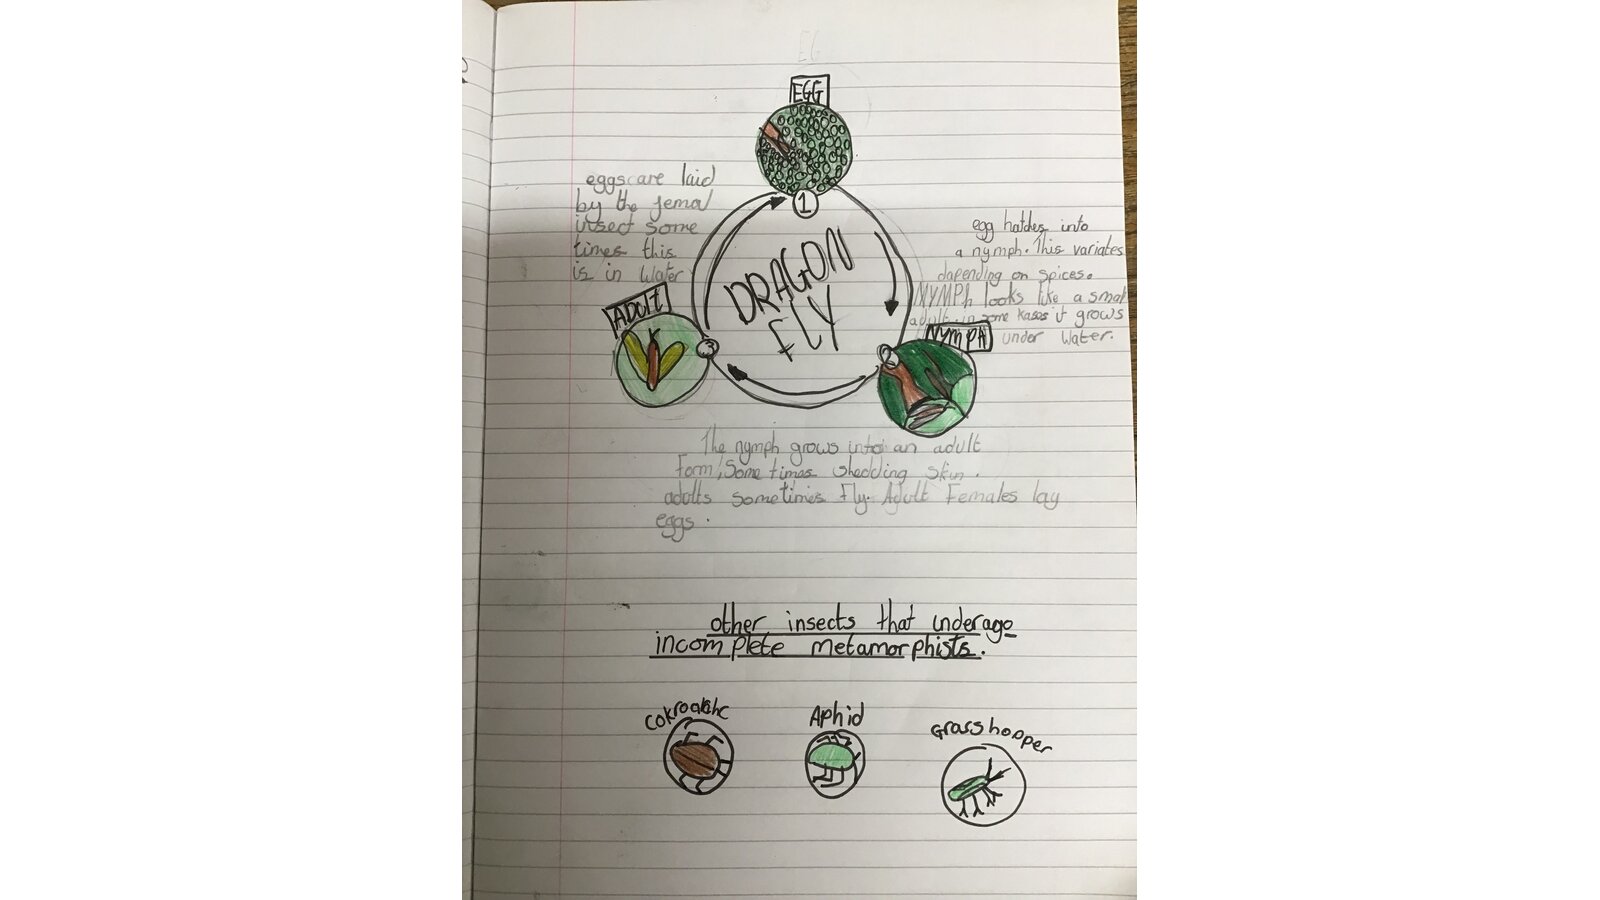 EG
EGG
eggs are laid
by the femal
insect some
times this
is in water
1
egg hatches into
a nymph. This variates
dapending on spices.
NYMPh looks like a smal
adult. in some kases it grows
under water.
DRAGON
FLY
ADULT
3
2
NYMPH
The nymph grows into an adult
Form, Some times shedding skin.
adults sometimes Fly. Adult Females lay
eggs.
other insects that underago
incomplete metamorphists.
Aphid
Grasshopper